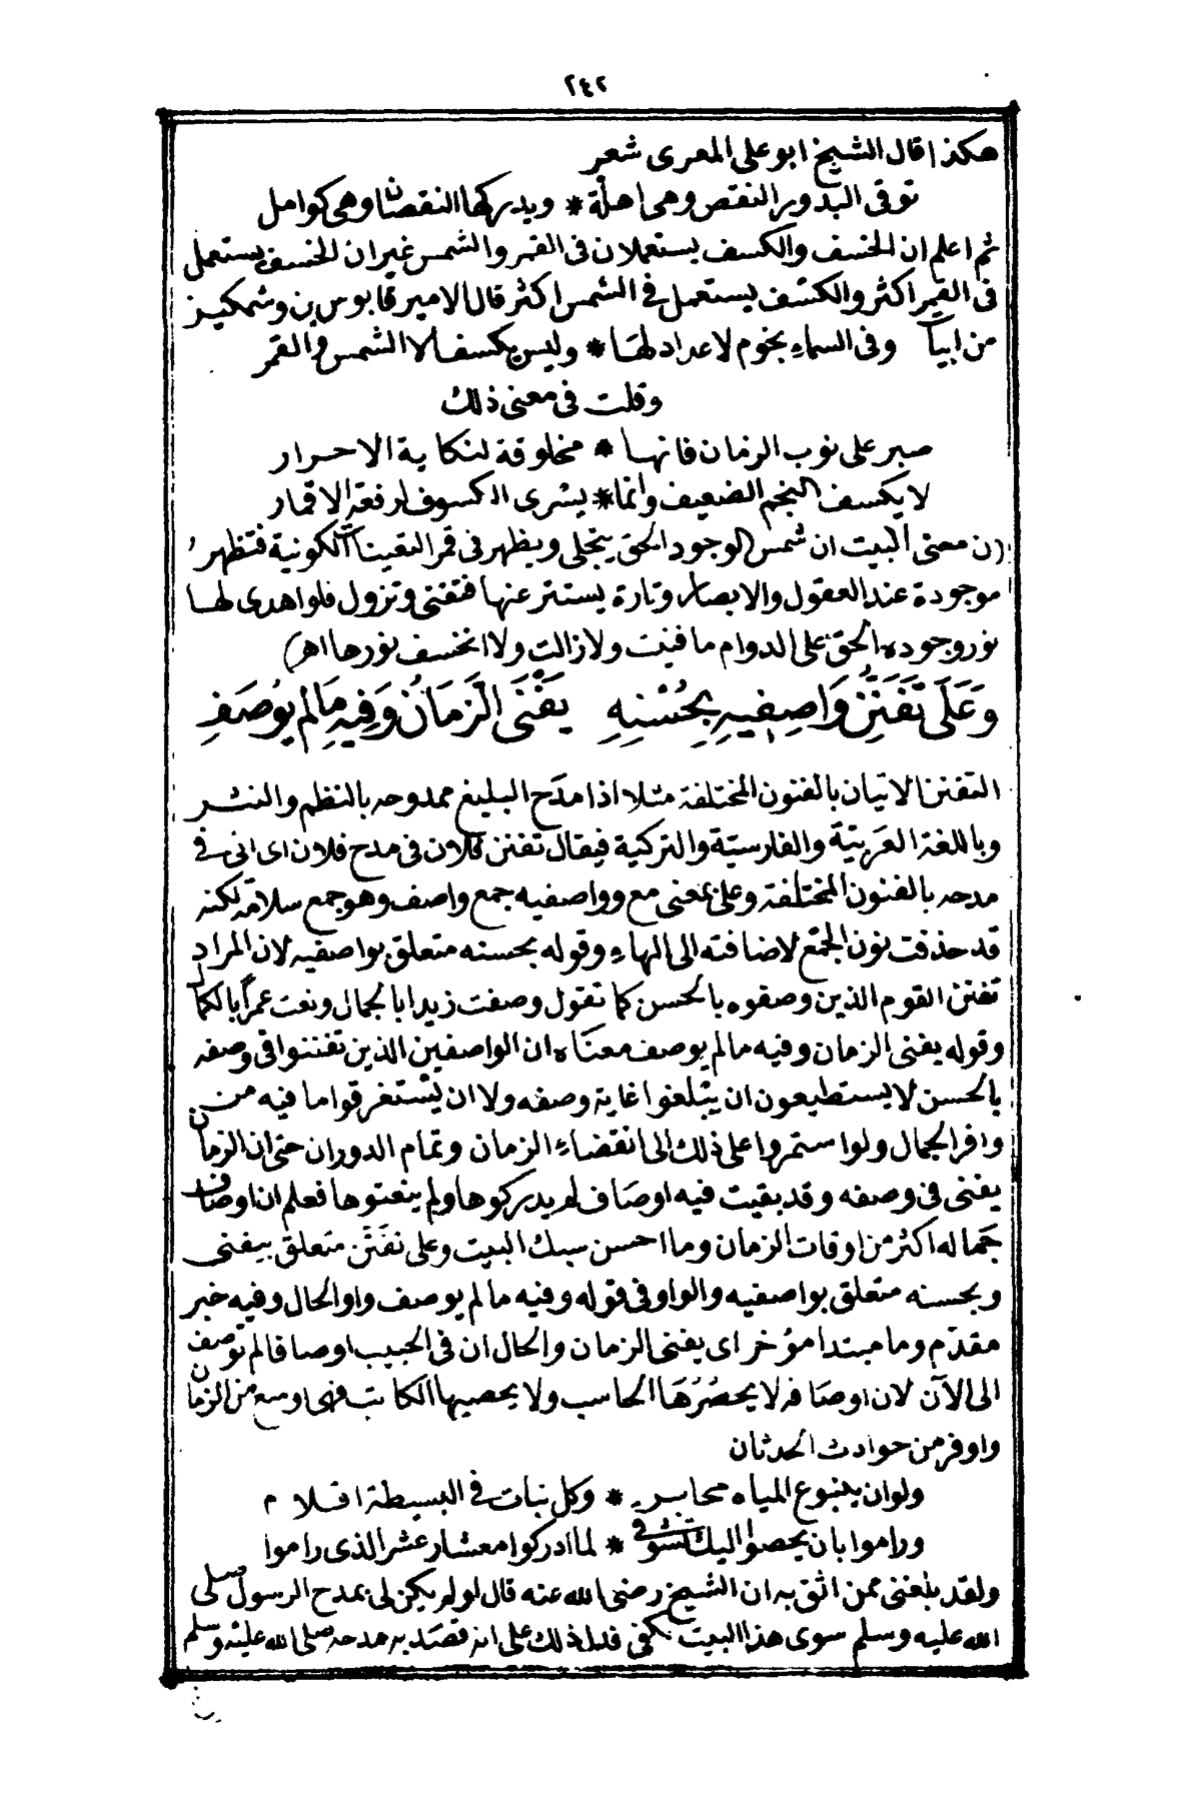 ٢٤٢
هكذا قال الشيخ ابو على المعرى شعر
توقى البدور النقص وهى اهلّة * ويدركها النقصان وهى كوامل
ثم اعلم ان الخسف والكسف يستعملان فى القمر والشمس غير ان الخسف يستعمل
فى القمر اكثر والكسف يستعمل فى الشمس اكثر قال الامير قابوس بن وشمكيز
من ابيات وفى السماء نجوم لاعداد لها * وليس يكسف الا الشمس والقمر
وقلت فى معنى ذلك
صبر على نوب الزمان فانها * مخلوقة لنكاية الاحرار
لا يكسف النجم الضعيف وانما * يسرى الكسوف لرفعة الاقمار
(ن معنى البيت ان شمس الوجود الحق يتجلى ويظهر فى قمر التعينات الكونية فتظهر
موجودة عند العقول والابصار وتارة يستتر عنها فتفنى وتزول فلو اهدى لها
نور وجوده الحق على الدوام ما فنيت ولا زالت ولا انخسف نورها اهـ)
وَعَلَى تَفَنُّنِ وَاصِفِيهِ بِحُسْنِهِ يَفْنَى الزَمَانُ وَفِيهِ مَالم يُوصَفِ
التفنن الاتيان بالفنون المختلفة مثلا اذا مدَح البليغ ممدوحه بالنظم والنثر
وباللغة العَربيّة والفارسيّة والتركية فيقال تفنن فلان فى مدح فلان اى اتى فى
مدحه بالفنون المختلفة وعلى بمعنى مع وواصفيه جمع واصف وهو جمع سلامة لكنه
قد حذفت نون الجمع لاضافته الى الهاء وقوله بحسنه متعلق بواصفيه لان المراد
تفنن القوم الذين وصفوه بالحسن كما تقول وصفت زيدا بالجمال ونعت عمراً بالكمال
وقوله يفنى الزمان وفيه مالم يوصف معنَاه ان الواصفين الذين تفننوا فى وصفه
بالحسن لا يستطيعون ان يَبلغوا غاية وصفه ولا ان يَستغرقوا ما فيه من
وافر الجمال ولو استمروا على ذلك الى انقضاء الزمان وتمام الدوران حتى ان الزمان
يفنى فى وصفه وقد بقيت فيه اوصَاف لم يدركوها ولم ينعتوها فعلم ان اوصاف
جَماله اكثر من اوقات الزمان وما احسن سبك البيت وعلى تفَنّن متعلق بيفنى
وبحسنه متعلق بواصفيه والواو فى قوله وفيه مالم يوصف واو الحال وفيه خبر
مقدّم وما مبتدا مؤخر اى يفنى الزمان والحال ان فى الحبيب اوصافا لم توصف
الى الآن لان اوصَافه لا يحصُرُهَا الحاسب ولا يحصيها الكاتب فهى اوسع من الزمان
واوفر من حوادث الحدثان
ولو ان ينبوع المياه محابر * وكل نبات فى البسيطة اقلام
وراموا بان يحصوا اليك تشوقى * لما ادركوا معشار عشر الذى راموا
ولقد بلغنى ممن اثق به ان الشيخ رضى الله عنه قال لو لم يكن لى بمدح الرسول صلى
الله عليه وسلم سوى هذا البيت لكفى فدل ذلك على انه قصَد به مدحه صلى الله عليه وسلم